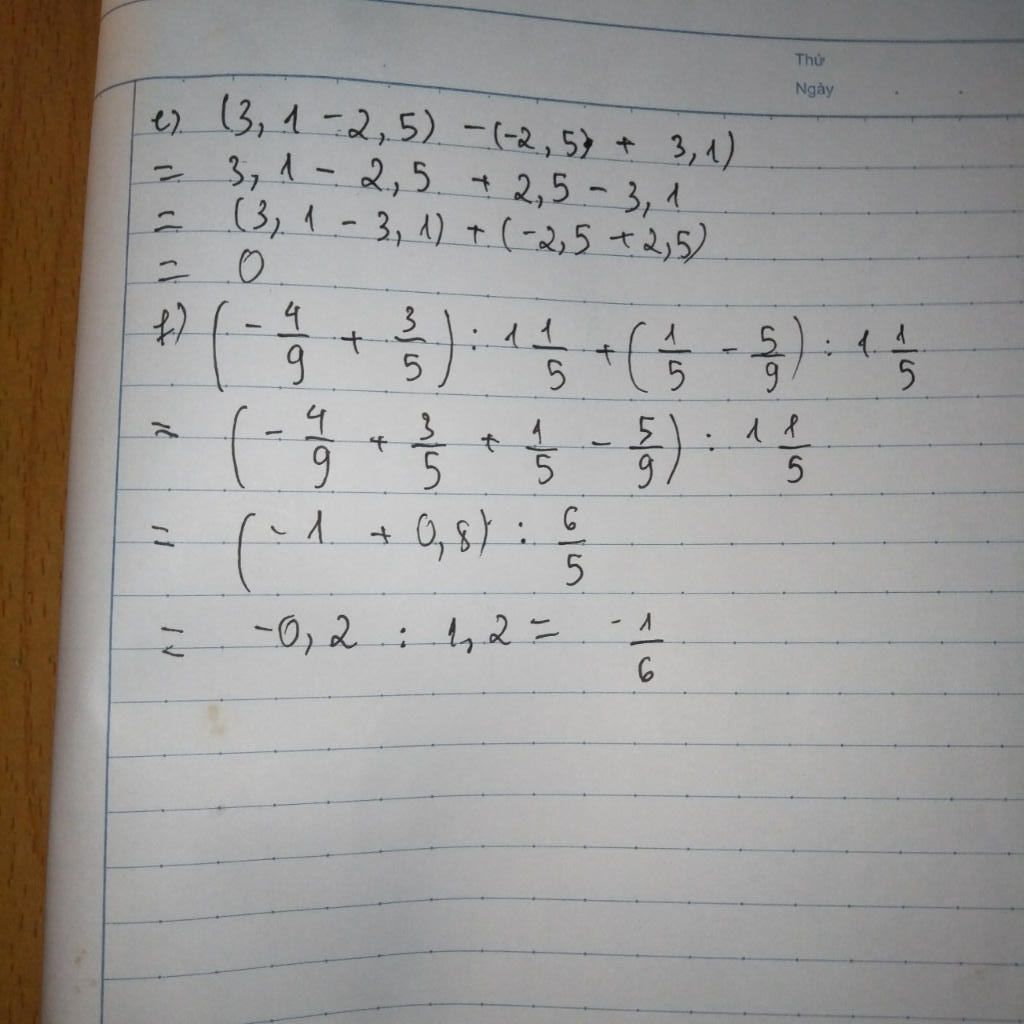 Thứ
Ngày
e) (3,1 - 2,5) - (-2,5) + 3,1)
= 3,1 - 2,5 + 2,5 - 3,1
= (3,1 - 3,1) + (-2,5 + 2,5)
= 0
f) (-4/9 + 3/5) : 1 1/5 + (1/5 - 5/9) : 1 1/5
= (-4/9 + 3/5 + 1/5 - 5/9) : 1 1/5
= (-1 + 0,8) : 6/5
= -0,2 : 1,2 = -1/6